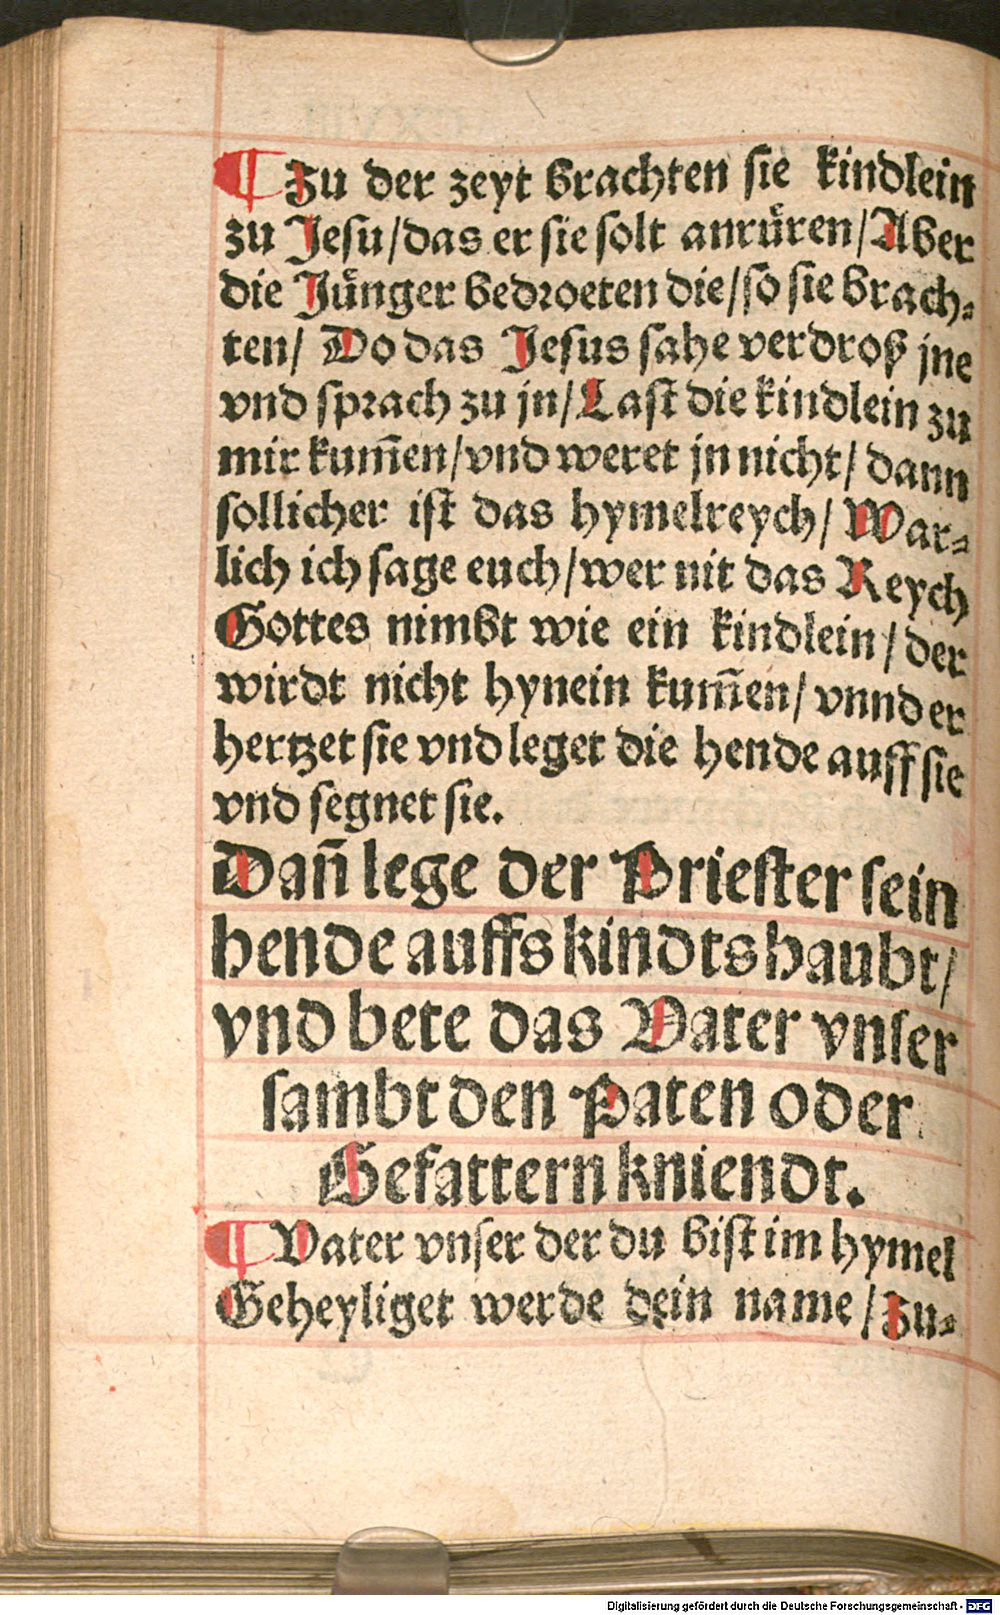 ¶ Zu der zeyt brachten sie kindlein
zu Jesu/das er sie solt anruͤren/Aber
die Juͤnger bedroeten die/so sie brach⸗
ten/ Do das Jesus sahe verdroß jne
vnd sprach zu jn/Last die kindlein zu
mir kum̃en/vnd weret jn nicht/ dann
sollicher ist das hymelreych/ War⸗
lich ich sage euch/wer nit das Reych
Gottes nimbt wie ein kindlein/ der
wirdt nicht hynein kum̃en/ vnnd er
hertzet sie vnd leget die hende auff sie
vnd segnet sie.
Dañ lege der Priester sein
hende auffs kindts haubt/
vnd bete das Vater vnser
sambt den Paten oder
Gefattern kniendt.
¶ Vater vnser der du bist im hymel
Geheyliget werde dein name/ Zu⸗
Digitalisierung gefördert durch die Deutsche Forschungsgemeinschaft - DFG